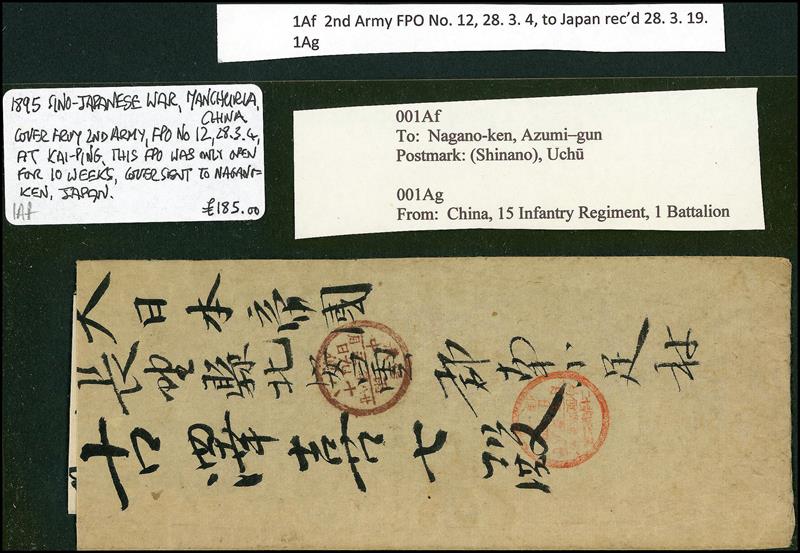 1Af 2nd Army FPO No. 12, 28. 3. 4, to Japan rec’d 28. 3. 19.
1Ag
1895 SINO-JAPANESE WAR, MANCHURIA,
CHINA
COVER FROM 2ND ARMY, FPO No 12, 28.3.4,
AT KAI-PING, THIS FPO WAS ONLY OPEN
FOR 10 WEEKS, COVER SENT TO NAGANO-
KEN, JAPAN.
1Af £185.00
001Af
To: Nagano-ken, Azumi–gun
Postmark: (Shinano), Uchū
001Ag
From: China, 15 Infantry Regiment, 1 Battalion
大日本帝國
長野縣北安曇郡南小足村
吉澤喜七殿